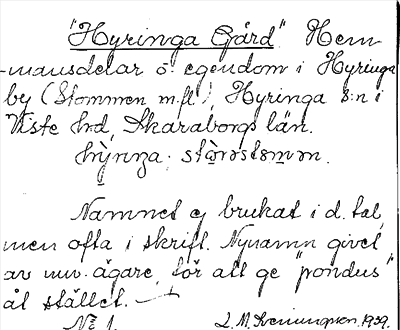 "Hyringa Gård" Hem-
mansdelar o. egendom i Hyringa
by (Stommen m.fl.), Hyringa s:n i
Viste hd, Skaraborgs län.
Namnet ej brukat i d. tal,
men ofta i skrift. Nynamn givet
av nuv. ägare, för att ge "pondus"
åt stället.
No 1. L. M. 1929.